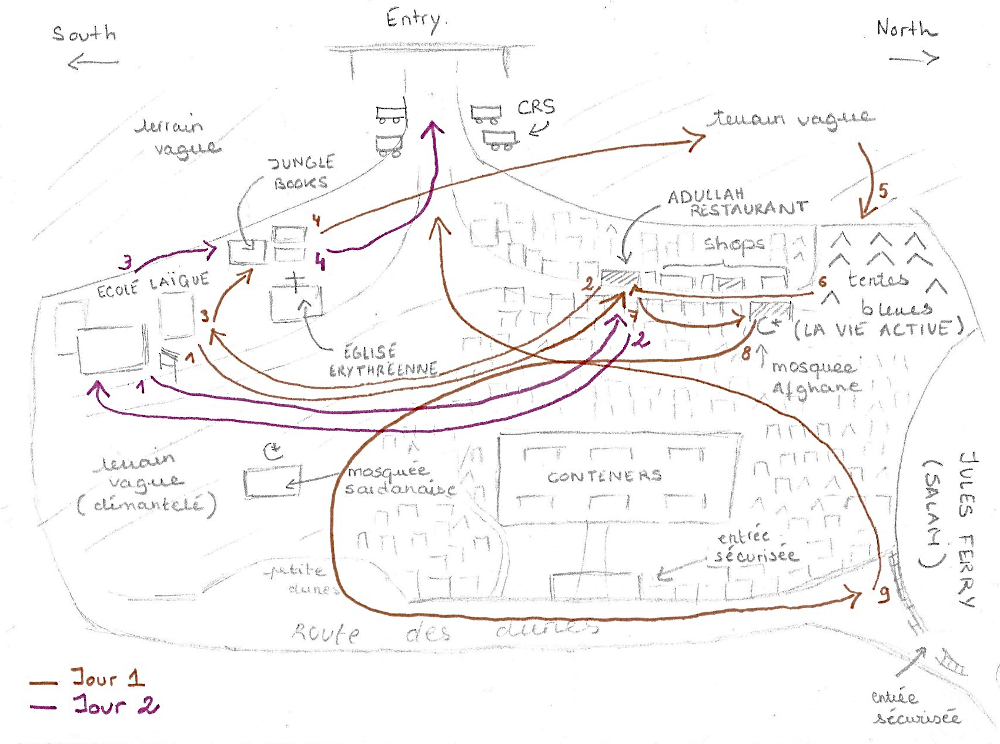 Entry.
South
North
CRS
terrain
vague
terrain vague
JUNGLE
BOOKS
4
5
ADULLAH
RESTAURANT
shops
3
4
ECOLE LAÏQUE
2
6
tentes
bleues
(LA VIE ACTIVE)
3
7
1
2
8
ÉGLISE
ERYTHRÉENNE
1
mosquée
Afghane
terrain
vague
(démantelé)
mosquée
soudanaise
CONTENERS
entrée
sécurisée
JULES FERRY
(SALAM)
petite
dunes
9
Route des dunes
Jour 1
Jour 2
entiée
sécurisée